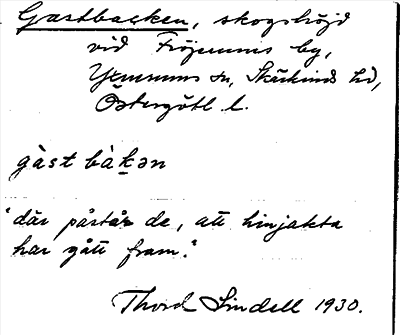 Gastbacken, skogshöjd
vid Fröjemms by,
Yxnerums sn, Skärkinds hd,
Östergötl l.
gàst bàḵən
"där påstår de, att hinjakta
har gått fram."
Thord Lindell 1930.